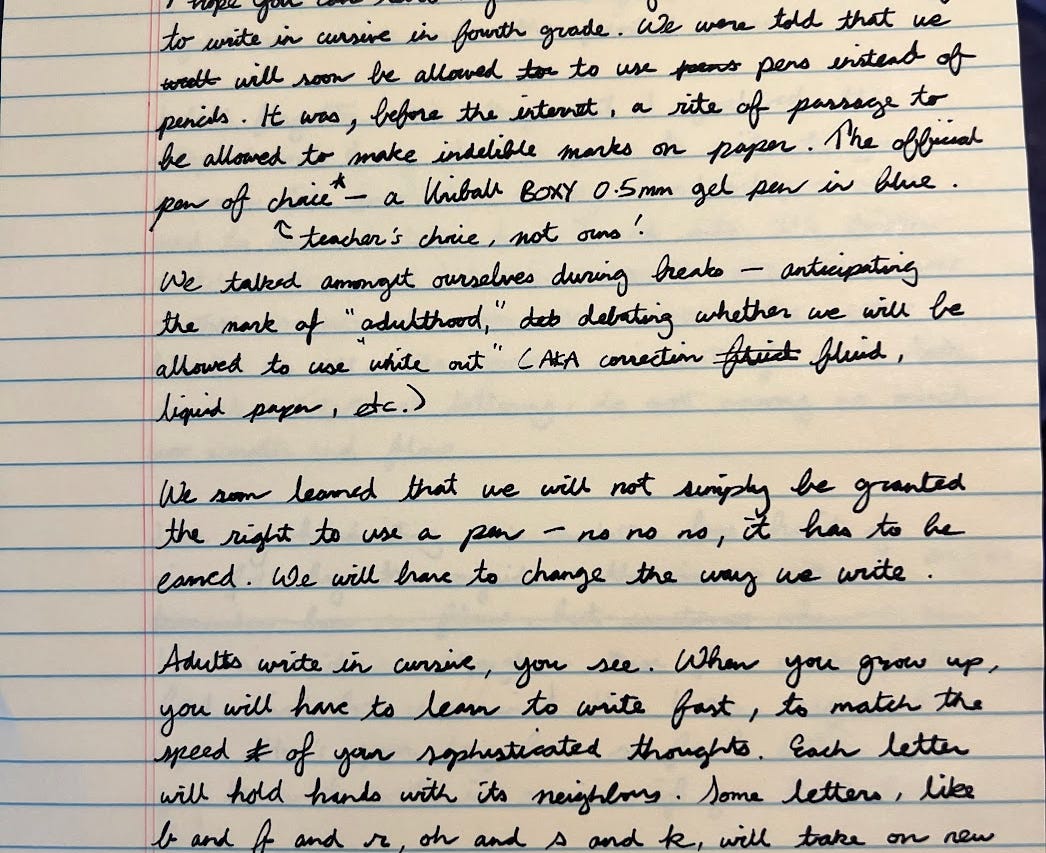 I hope you can
to write in cursive in fourth grade. We were told that we
will soon be allowed to to use pens instead of
pencils. It was, before the internet, a rite of passage to
be allowed to make indelible marks on paper. The official
pen of choice* — a Uniball BOXY 0.5mm gel pen in blue.
↑ teacher's choice, not ours!
We talked amongst ourselves during breaks — anticipating
the mark of "adulthood," deb debating whether we will be
allowed to use "white out" (AKA correction fluid,
liquid paper, etc.)
We soon learned that we will not simply be granted
the right to use a pen — no no no, it has to be
earned. We will have to change the way we write.
Adults write in cursive, you see. When you grow up,
you will have to learn to write fast, to match the
speed of your sophisticated thoughts. Each letter
will hold hands with its neighbors. Some letters, like
b and f and r, oh and s and k, will take on new